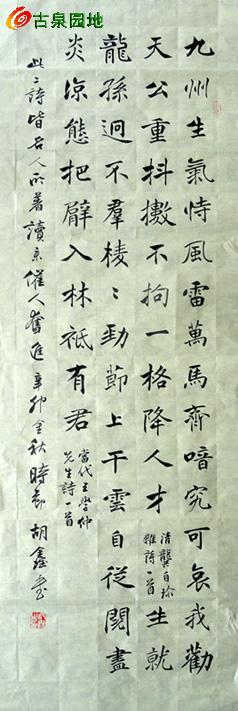 古泉园地
九州生氣恃風雷萬馬齊喑究可哀我勸
天公重抖擻不拘一格降人才
清龔自珍
雜詩一首
生就
龍孫迥不羣稜〻勁節上干雲自從閱盡
炎涼態把臂入林祗有君
當代王學仲
先生詩一首
此二詩皆名人所著讀來催人奮進辛卯金秋時節胡鑫書